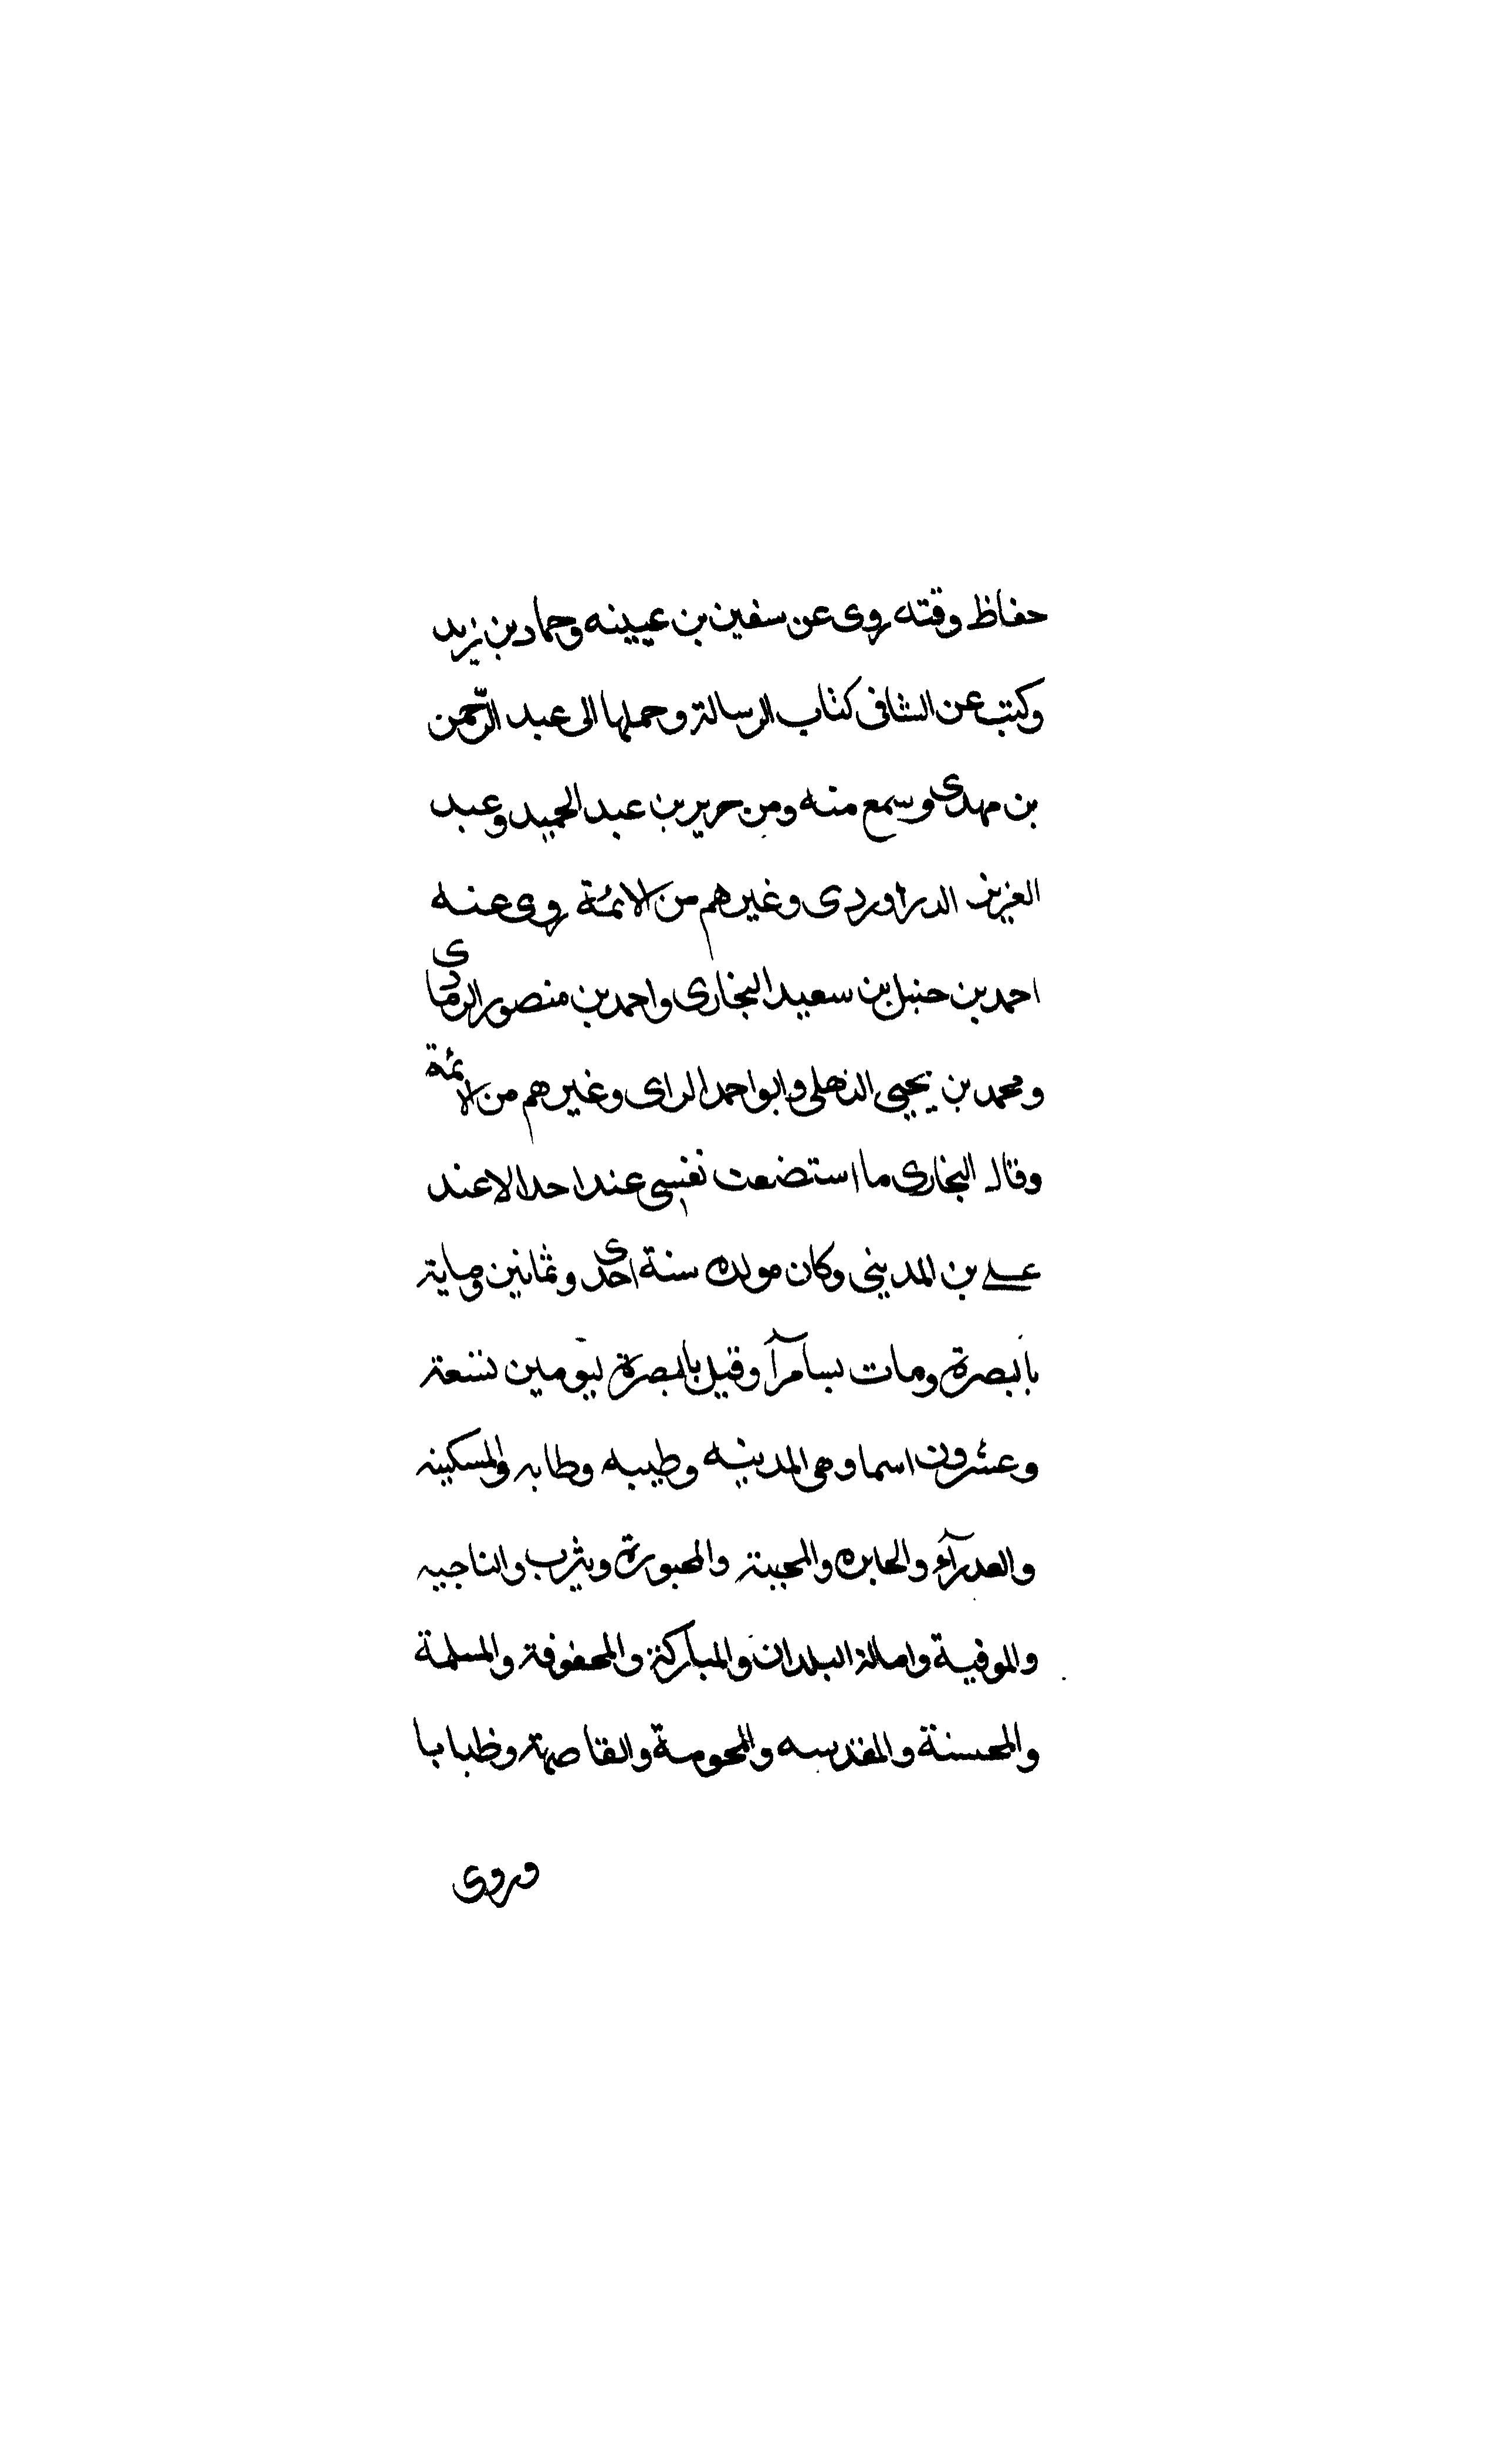 حفاظ وقته روى عن سفين بن عيينه وحماد بن زيد
وكتب عن الشافى كتاب الرسالة وحملها الى عبد الرّحمن
بن مهدى وسمع منه ومن حرير بن عبد الحميد وعبد
العزيز الدراوردى وغيرهم من الائمة روى عنه
احمد بن حنبل بن سعيد البخارى واحمد بن منصور الرمادى
ومحمد بن يحيى الذهلى وابو احمد الراى وغيرهم من الائمة
وقال البخارى ما استضعت نفسى عند احد الا عند
على بن المدينى وكان مولده سنة احدى وثمانين وماية
بالبصرة ومات بسامرآ وقيل بالبصرة ليومين تسعة
وعشرون اسما وهى المدينه وطيبه وطابه والمسكينه
والعدرآء والحابره والمجبة والمحبورة ويثرب والناجيه
والموفية وامالة البلدان والمباركة والمحفوفة والمسلمة
والمحسنة والمقدسه والمحومة والقاصمة وظبابا
وروى